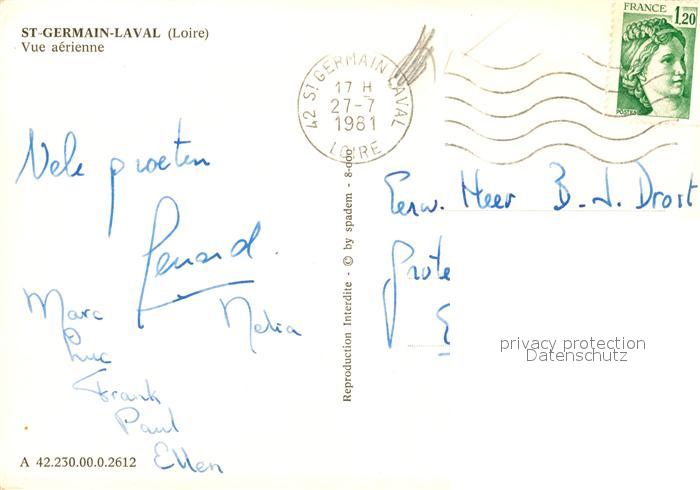 ST-GERMAIN-LAVAL (Loire)
Vue aérienne
FRANCE
1,20
POSTES
42 ST GERMAIN LAVAL
17 H
27-7
1981
LOIRE
Vele groeten
Marc
Nelia
Luc
Frank
Paul
Ellen
A 42.230.00.0.2612
Reproduction Interdite - © by spadem - 8-000
Eerw. Heer B. J. Drost
Grote
privacy protection
Datenschutz